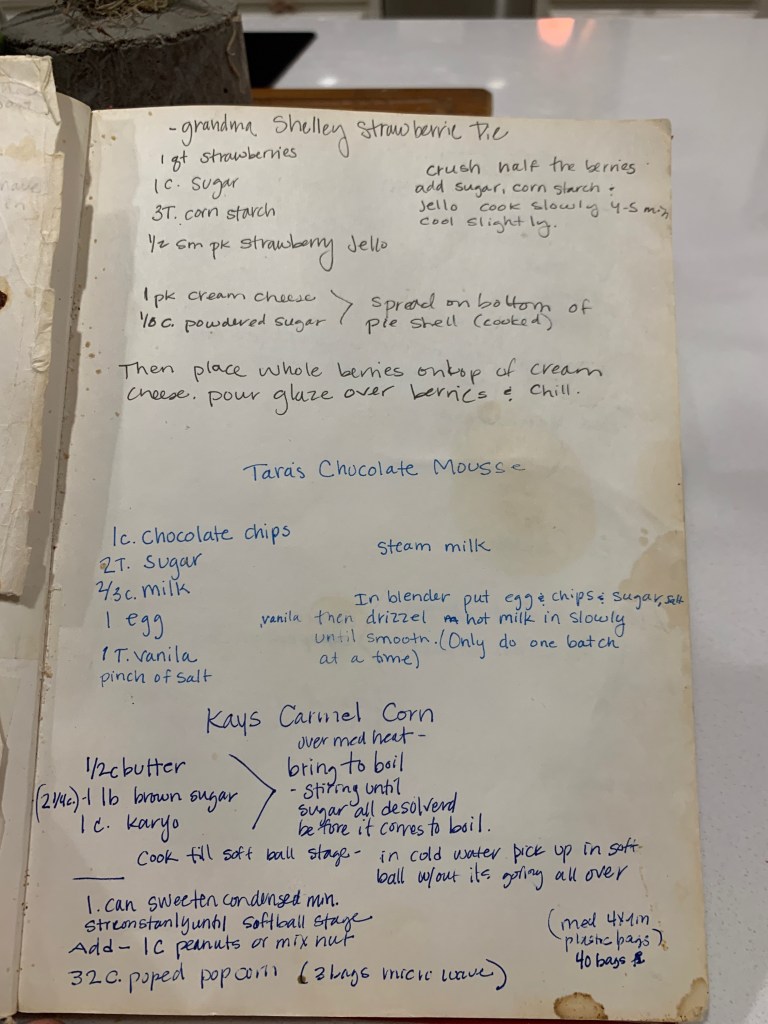 - grandma Shelley Strawberrie Pie
1 qt strawberries
1 c. sugar
3T. corn starch
1/2 sm pk strawberry Jello
crush half the berries
add sugar, corn starch &
Jello cook slowly 4-5 min
cool slightly.
1 pk cream cheese
powdered sugar
spread on bottom of
pie shell (cooked)
Then place whole berries ontop of cream
cheese. pour glaze over berries & chill.
Tara's Chocolate Mousse
1c. Chocolate chips
2T. sugar
2/3c. milk
1 egg
1 T. vanila
pinch of salt
steam milk
In blender put egg & chips & sugar, salt
vanila then drizzel hot milk in slowly
until smooth. (Only do one batch
at a time)
Kays Carmel Corn
1/2 c butter
(2 1/4 c.) - 1 lb brown sugar
1 c. karyo
over med heat -
bring to boil
- stiring until
sugar all desolverd
before it comes to boil.
Cook till soft ball stage - in cold water pick up in soft
ball w/out its going all over
1. can sweeten condensed min.
until softball stage
Add - 1C peanuts or mix nut
32 C. poped popcorn (3 bags micro wave)
(med 4x1in
plastic bags)
40 bags